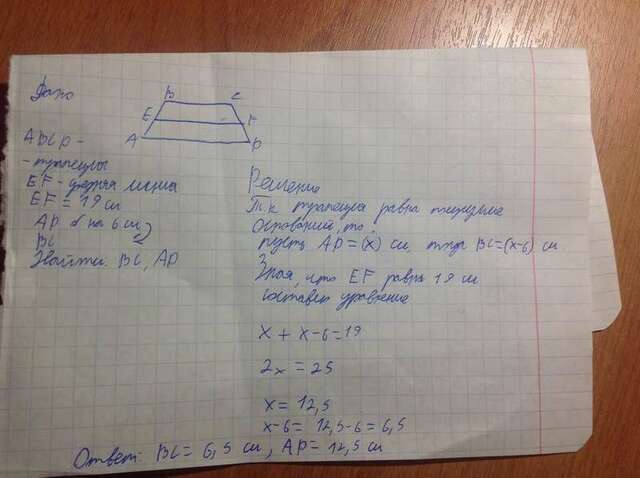 Дано
B C
E F
A D
ABCD -
- трапеция
EF - средняя линия
EF = 19 см
AD на 6 см
BC
Найти: BC, AD
Решение
Т.к трапеция равна
оснований, то
пусть AD = (x) см, тогда BC = (x-6) см
Зная, что EF равна 19 см
составим уравнение
x + x-6 = 19
2x = 25
x = 12,5
x-6 = 12,5-6 = 6,5
Ответ: BC = 6,5 см, AD = 12,5 см